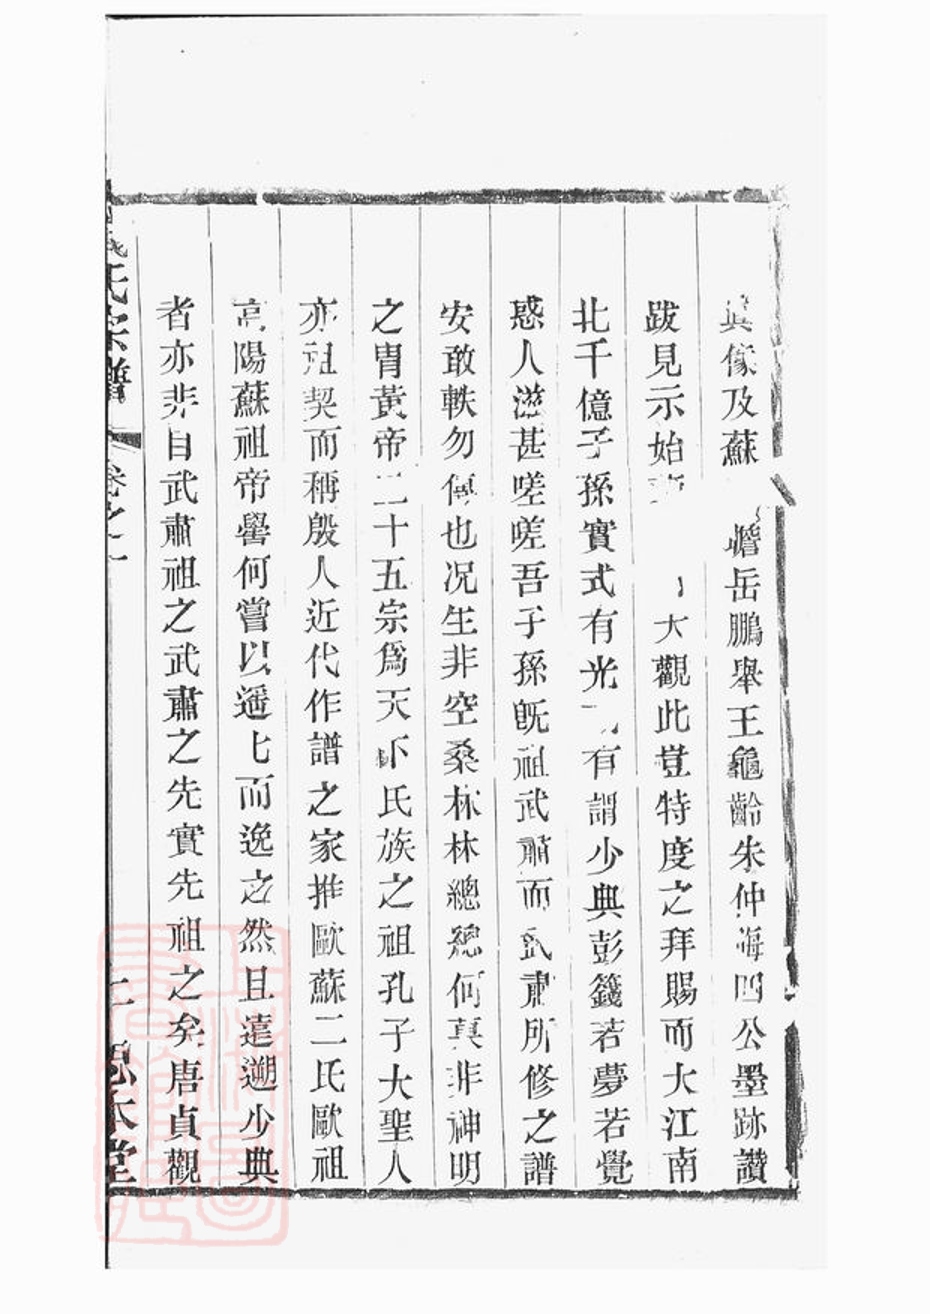 眞像及蘇瞻岳鵬舉王龜齡朱仲海四公墨跡讚
跋見示始大觀此豈特度之拜賜而大江南
北千億子孫實式有光有謂少典彭籛若夢若覺
惑人滋甚嗟嗟吾子孫旣祖武肅而武肅所修之譜
安敢軼勿傳也况生非空桑林林總總何莫非神明
之胄黃帝二十五宗爲天下氏族之祖孔子大聖人
亦祖契而稱殷人近代作譜之家推歐蘇二氏歐祖
高陽蘇祖帝嚳何嘗以遥七而逸之然且遠遡少典
者亦非自武肅祖之武肅之先實先祖之矣唐貞觀
氏宗譜
卷之一
二
本堂